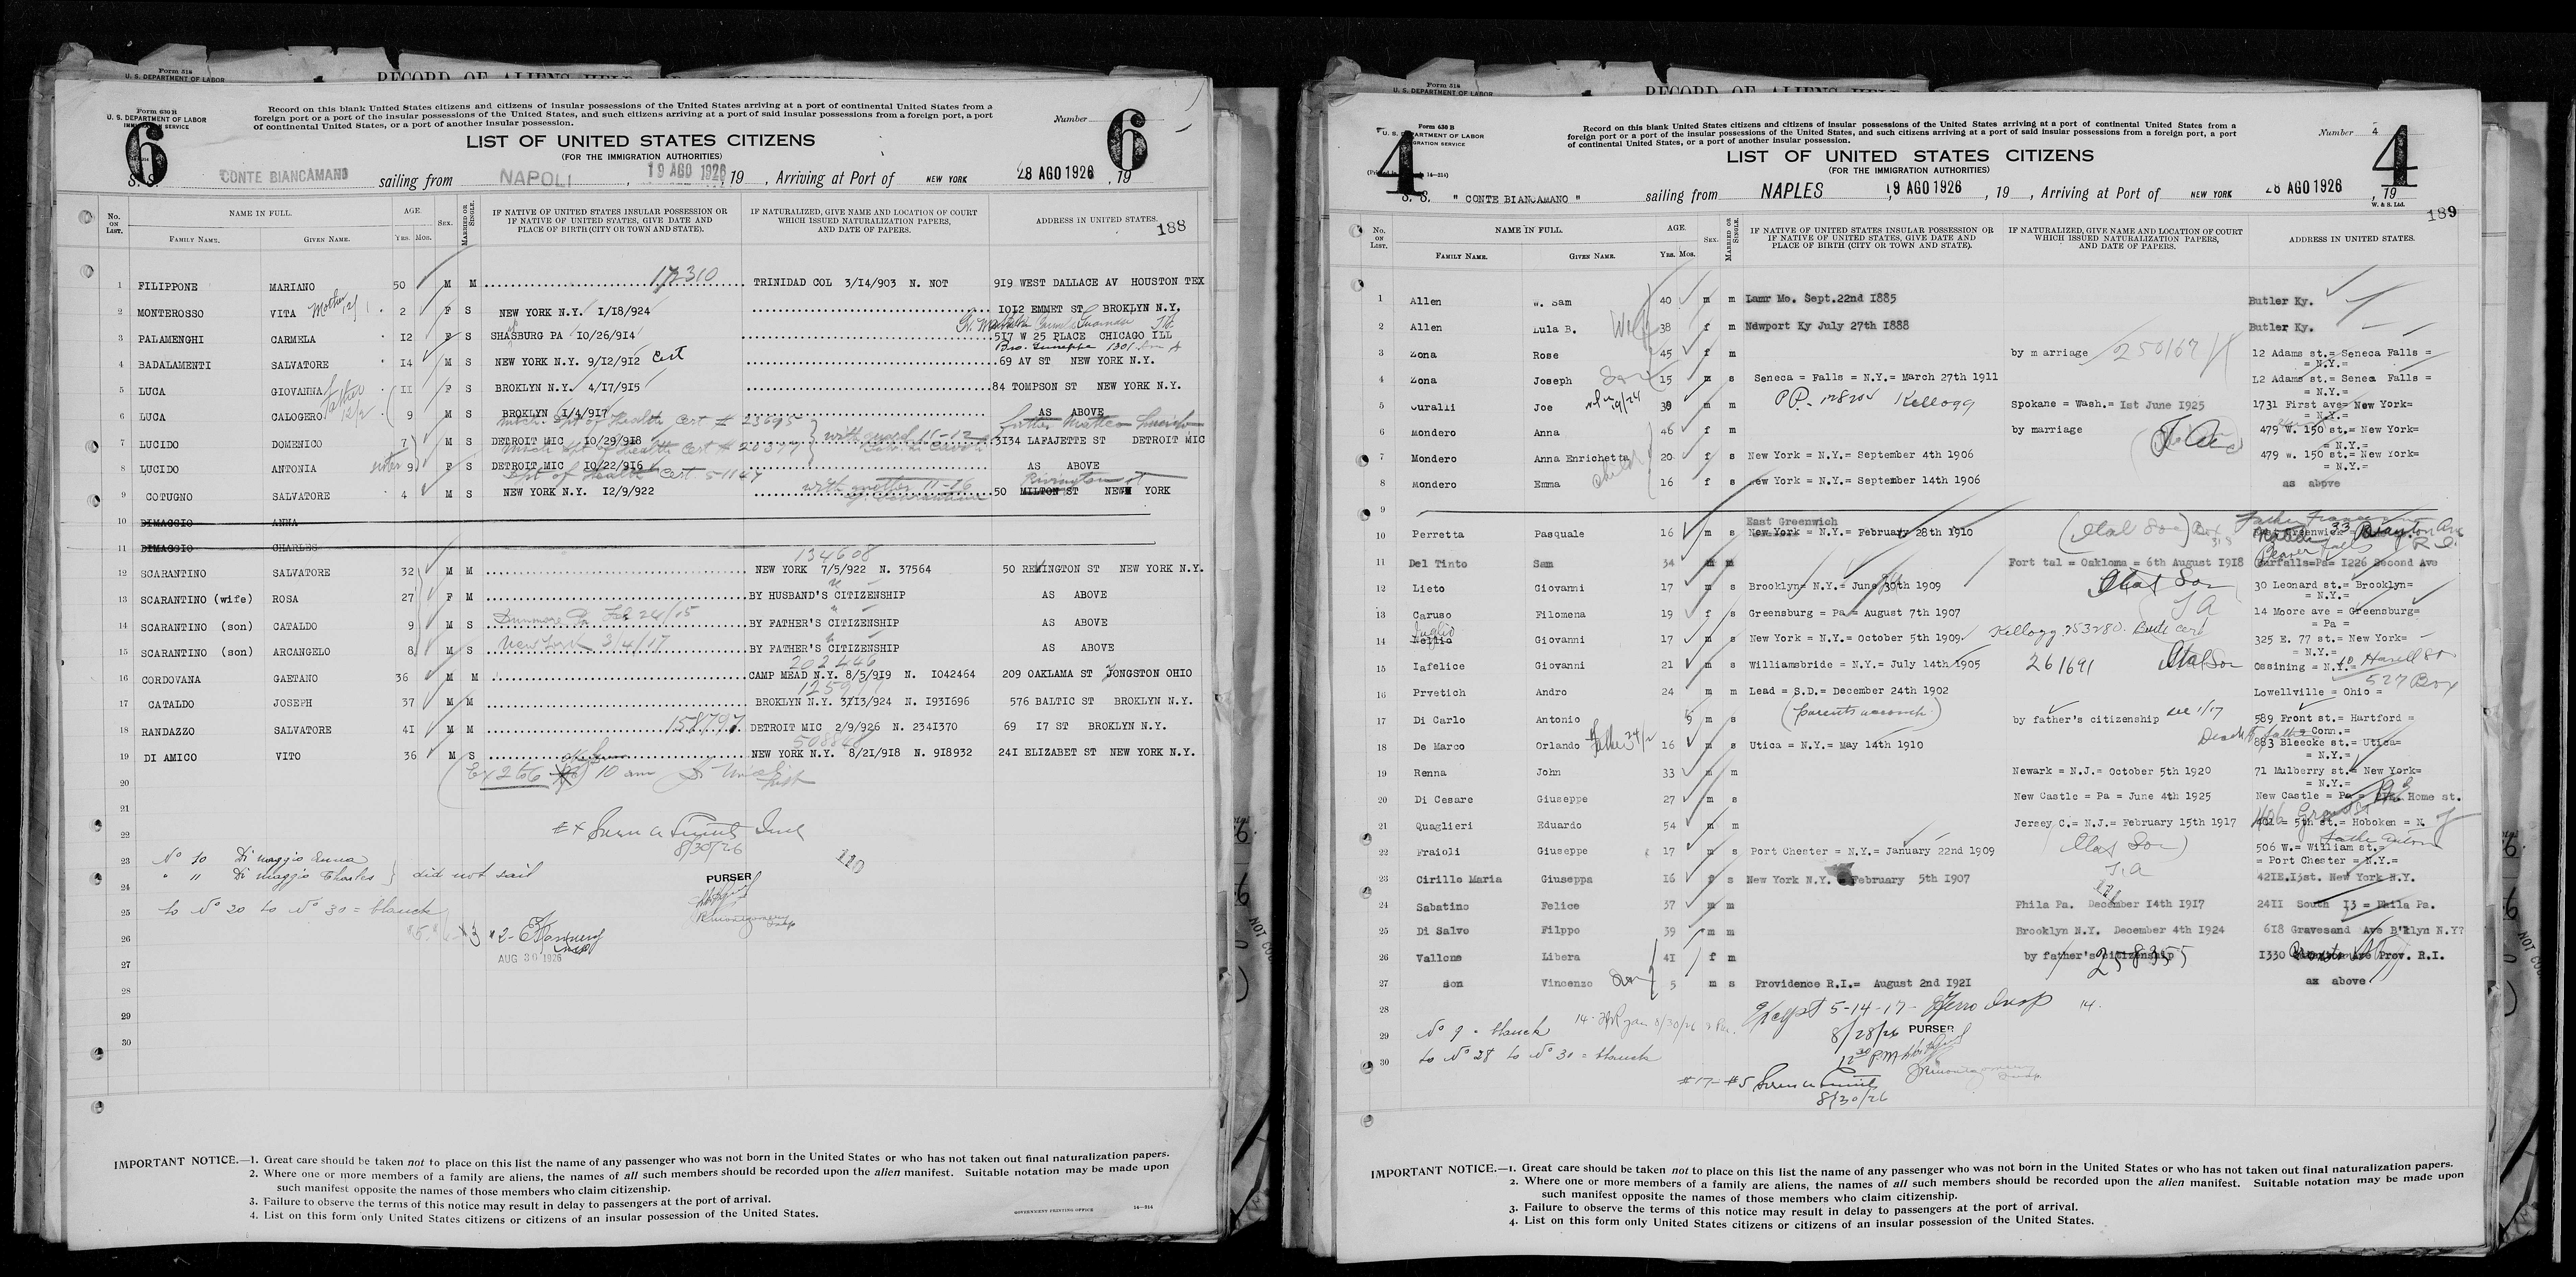 Form 518
U. S. DEPARTMENT OF LABOR
RECORD OF ALIENS HELD
Form 630 B
U. S. DEPARTMENT OF LABOR
IMMIGRATION SERVICE
6
Record on this blank United States citizens and citizens of insular possessions of the United States arriving at a port of continental United States from a
foreign port or a port of the insular possessions of the United States, and such citizens arriving at a port of said insular possessions from a foreign port, a port
of continental United States, or a port of another insular possession.
Number
6
LIST OF UNITED STATES CITIZENS
(FOR THE IMMIGRATION AUTHORITIES)
S. S. CONTE BIANCAMANO sailing from NAPOLI , 19 AGO 1926 , 19 , Arriving at Port of NEW YORK 28 AGO 1926 , 19
No. ON LIST. NAME IN FULL. AGE. SEX. MARRIED OR SINGLE. IF NATIVE OF UNITED STATES INSULAR POSSESSION OR IF NATIVE OF UNITED STATES, GIVE DATE AND PLACE OF BIRTH (CITY OR TOWN AND STATE). IF NATURALIZED, GIVE NAME AND LOCATION OF COURT WHICH ISSUED NATURALIZATION PAPERS, AND DATE OF PAPERS. ADDRESS IN UNITED STATES.
FAMILY NAME. GIVEN NAME. YRS. MOS.
188
1 FILIPPONE MARIANO 50 M M 172310 TRINIDAD COL 3/14/903 N. NOT 919 WEST DALLACE AV HOUSTON TEX
2 MONTEROSSO VITA Mother 2 F S NEW YORK N.Y. 1/18/924 1012 EMMET ST BROKLYN N.Y.
3 PALAMENGHI CARMELA 12 F S SHASBURG PA 10/26/914 517 W 25 PLACE CHICAGO ILL
4 BADALAMENTI SALVATORE 14 M S NEW YORK N.Y. 9/12/912 Cert 69 AV ST NEW YORK N.Y.
5 LUCA GIOVANNA father 11 F S BROKLYN N.Y. 4/17/915 84 TOMPSON ST NEW YORK N.Y.
6 LUCA CALOGERO 12/2 9 M S BROKLYN 1/4/917 AS ABOVE
Mich. Dpt of Health Cert # 23695 father Matteo Lucido
7 LUCIDO DOMENICO 7 M S DETROIT MIC 10/29/918 3134 LAFAJETTE ST DETROIT MIC
Mich Dpt of Health Cert # 20377
8 LUCIDO ANTONIA sister 9 F S DETROIT MIC 10/22/916 AS ABOVE
Dpt of Health Cert. 51147 with mother 11-16 Rivington st
9 COTUGNO SALVATORE 4 M S NEW YORK N.Y. 12/9/922 50 MILTON ST NEW YORK
10 DIMAGGIO ANNA
11 DIMAGGIO CHARLES
134608
12 SCARANTINO SALVATORE 32 M M NEW YORK 7/5/922 N. 37564 50 REVINGTON ST NEW YORK N.Y.
13 SCARANTINO (wife) ROSA 27 F M BY HUSBAND'S CITIZENSHIP AS ABOVE
14 SCARANTINO (son) CATALDO 9 M S Dunmore Pa Feb 24/15 BY FATHER'S CITIZENSHIP AS ABOVE
15 SCARANTINO (son) ARCANGELO 8 M S New York 3/4/17 BY FATHER'S CITIZENSHIP AS ABOVE
202446
16 CORDOVANA GAETANO 36 M M CAMP MEAD N.Y. 8/5/919 N. 1042464 209 OAKLAMA ST JONGSTON OHIO
17 CATALDO JOSEPH 37 M M BROKLYN N.Y. 3/13/924 N. 1931696 576 BALTIC ST BROKLYN N.Y.
18 RANDAZZO SALVATORE 41 M M 158797 DETROIT MIC 2/9/926 N. 2341370 69 17 ST BROKLYN N.Y.
19 DI AMICO VITO 36 M S NEW YORK N.Y. 8/21/918 N. 918932 241 ELIZABET ST NEW YORK N.Y.
20
21
22
8/30/26
23 No 10 Di maggio Anna
" 11 Di maggio Charles } did not sail
24 PURSER
25 to No 20 to No 30 = blanck
26
AUG 30 1926
27
28
29
30
IMPORTANT NOTICE.—1. Great care should be taken not to place on this list the name of any passenger who was not born in the United States or who has not taken out final naturalization papers.
2. Where one or more members of a family are aliens, the names of all such members should be recorded upon the alien manifest. Suitable notation may be made upon
such manifest opposite the names of those members who claim citizenship.
3. Failure to observe the terms of this notice may result in delay to passengers at the port of arrival.
4. List on this form only United States citizens or citizens of an insular possession of the United States.
GOVERNMENT PRINTING OFFICE 14—314
Form 518
U. S. DEPARTMENT OF LABOR
RECORD OF ALIENS HELD
Form 630 B
U. S. DEPARTMENT OF LABOR
IMMIGRATION SERVICE
4
Record on this blank United States citizens and citizens of insular possessions of the United States arriving at a port of continental United States from a
foreign port or a port of the insular possessions of the United States, and such citizens arriving at a port of said insular possessions from a foreign port, a port
of continental United States, or a port of another insular possession.
Number 4
4
LIST OF UNITED STATES CITIZENS
(FOR THE IMMIGRATION AUTHORITIES)
S. S. " CONTE BIANCAMANO " sailing from NAPLES , 19 AGO 1926 , 19 , Arriving at Port of NEW YORK 28 AGO 1926 , 19
W. & S. Ltd.
189
No. ON LIST. NAME IN FULL. AGE. SEX. MARRIED OR SINGLE. IF NATIVE OF UNITED STATES INSULAR POSSESSION OR IF NATIVE OF UNITED STATES, GIVE DATE AND PLACE OF BIRTH (CITY OR TOWN AND STATE). IF NATURALIZED, GIVE NAME AND LOCATION OF COURT WHICH ISSUED NATURALIZATION PAPERS, AND DATE OF PAPERS. ADDRESS IN UNITED STATES.
FAMILY NAME. GIVEN NAME. YRS. MOS.
1 Allen W. Sam 40 m m Lamr Mo. Sept.22nd 1885 Butler Ky.
2 Allen Lula B. Wife 38 f m Newport Ky July 27th 1888 Butler Ky.
3 Zona Rose 45 f m by marriage 250167 12 Adams st.= Seneca Falls = = N.Y.=
4 Zona Joseph Son 15 m s Seneca = Falls = N.Y.= March 27th 1911 12 Adams st.= Seneca Falls = = N.Y.=
5 Curalli Joe 39 m m PP. 128204 Kellogg Spokane = Wash.= 1st June 1925 1731 First ave= New York= = N.Y.=
6 Mondero Anna 46 f m by marriage 479 W. 150 st.= New York= = N.Y.=
7 Mondero Anna Enrichetta 20 f s New York = N.Y.= September 4th 1906 479 w. 150 st.= New York= = N.Y.=
8 Mondero Emma child 16 f s New York = N.Y.= September 14th 1906 as above
9
East Greenwich
10 Perretta Pasquale 16 m s New York = N.Y.= February 28th 1910
11 Del Tinto Sam 34 m m Fort tal = Oakloma = 6th August 1918 Burfalls=Pa= 1226 Second Ave
12 Lieto Giovanni 17 m s Brooklyn= N.Y.= June 30th 1909 30 Leonard st.= Brooklyn= = N.Y.=
13 Caruso Filomena 19 f s Greensburg = Pa = August 7th 1907 14 Moore ave = Greensburg= = Pa =
14 Nellio Giovanni 17 m s New York = N.Y.= October 5th 1909 Kellogg 253280 325 E. 77 st.= New York= = N.Y.=
15 Iafelice Giovanni 21 m s Williamsbride = N.Y.= July 14th 1905 261691 Ossining = N.Y.=
527 Box
16 Prvetich Andro 24 m m Lead = S.D.= December 24th 1902 Lowellville = Ohio =
17 Di Carlo Antonio 9 m s by father's citizenship 589 Front st.= Hartford = = Conn.=
18 De Marco Orlando father 16 m s Utica = N.Y.= May 14th 1910 883 Bleecke st.= Utica= = N.Y.=
19 Renna John 33 m m Newark = N.J.= October 5th 1920 71 Mulberry st.= New York= = N.Y.=
20 Di Cesare Giuseppe 27 m s New Castle = Pa = June 4th 1925 New Castle = Pa = Home st.
21 Quaglieri Eduardo 54 m m Jersey C.= N.J.= February 15th 1917 401 = 5th st.= Hoboken = N.
22 Fraioli Giuseppe 17 m s Port Chester = N.Y.= January 22nd 1909 506 W.= William st.= = Port Chester = N.Y.=
23 Cirillo Maria Giuseppa 16 f s New York N.Y. February 5th 1907 421E.13st. New York N.Y.
24 Sabatino Felice 37 m m Phila Pa. December 14th 1917 2411 South 13 = Phila Pa.
25 Di Salvo Filppo 39 m m Brooklyn N.Y. December 4th 1924 618 Gravesand Ave B'klyn N.Y?
26 Vallone Libera 41 f m by father's citizenship 258355 1330 Prov. R.I.
27 son Vincenzo Son 5 m s Providence R.I.= August 2nd 1921 ax above
28
29 No 9 = blanck 8/28/26 PURSER
30 to No 28 to No 30 = blanck
8/30/26
IMPORTANT NOTICE.—1. Great care should be taken not to place on this list the name of any passenger who was not born in the United States or who has not taken out final naturalization papers.
2. Where one or more members of a family are aliens, the names of all such members should be recorded upon the alien manifest. Suitable notation may be made upon
such manifest opposite the names of those members who claim citizenship.
3. Failure to observe the terms of this notice may result in delay to passengers at the port of arrival.
4. List on this form only United States citizens or citizens of an insular possession of the United States.